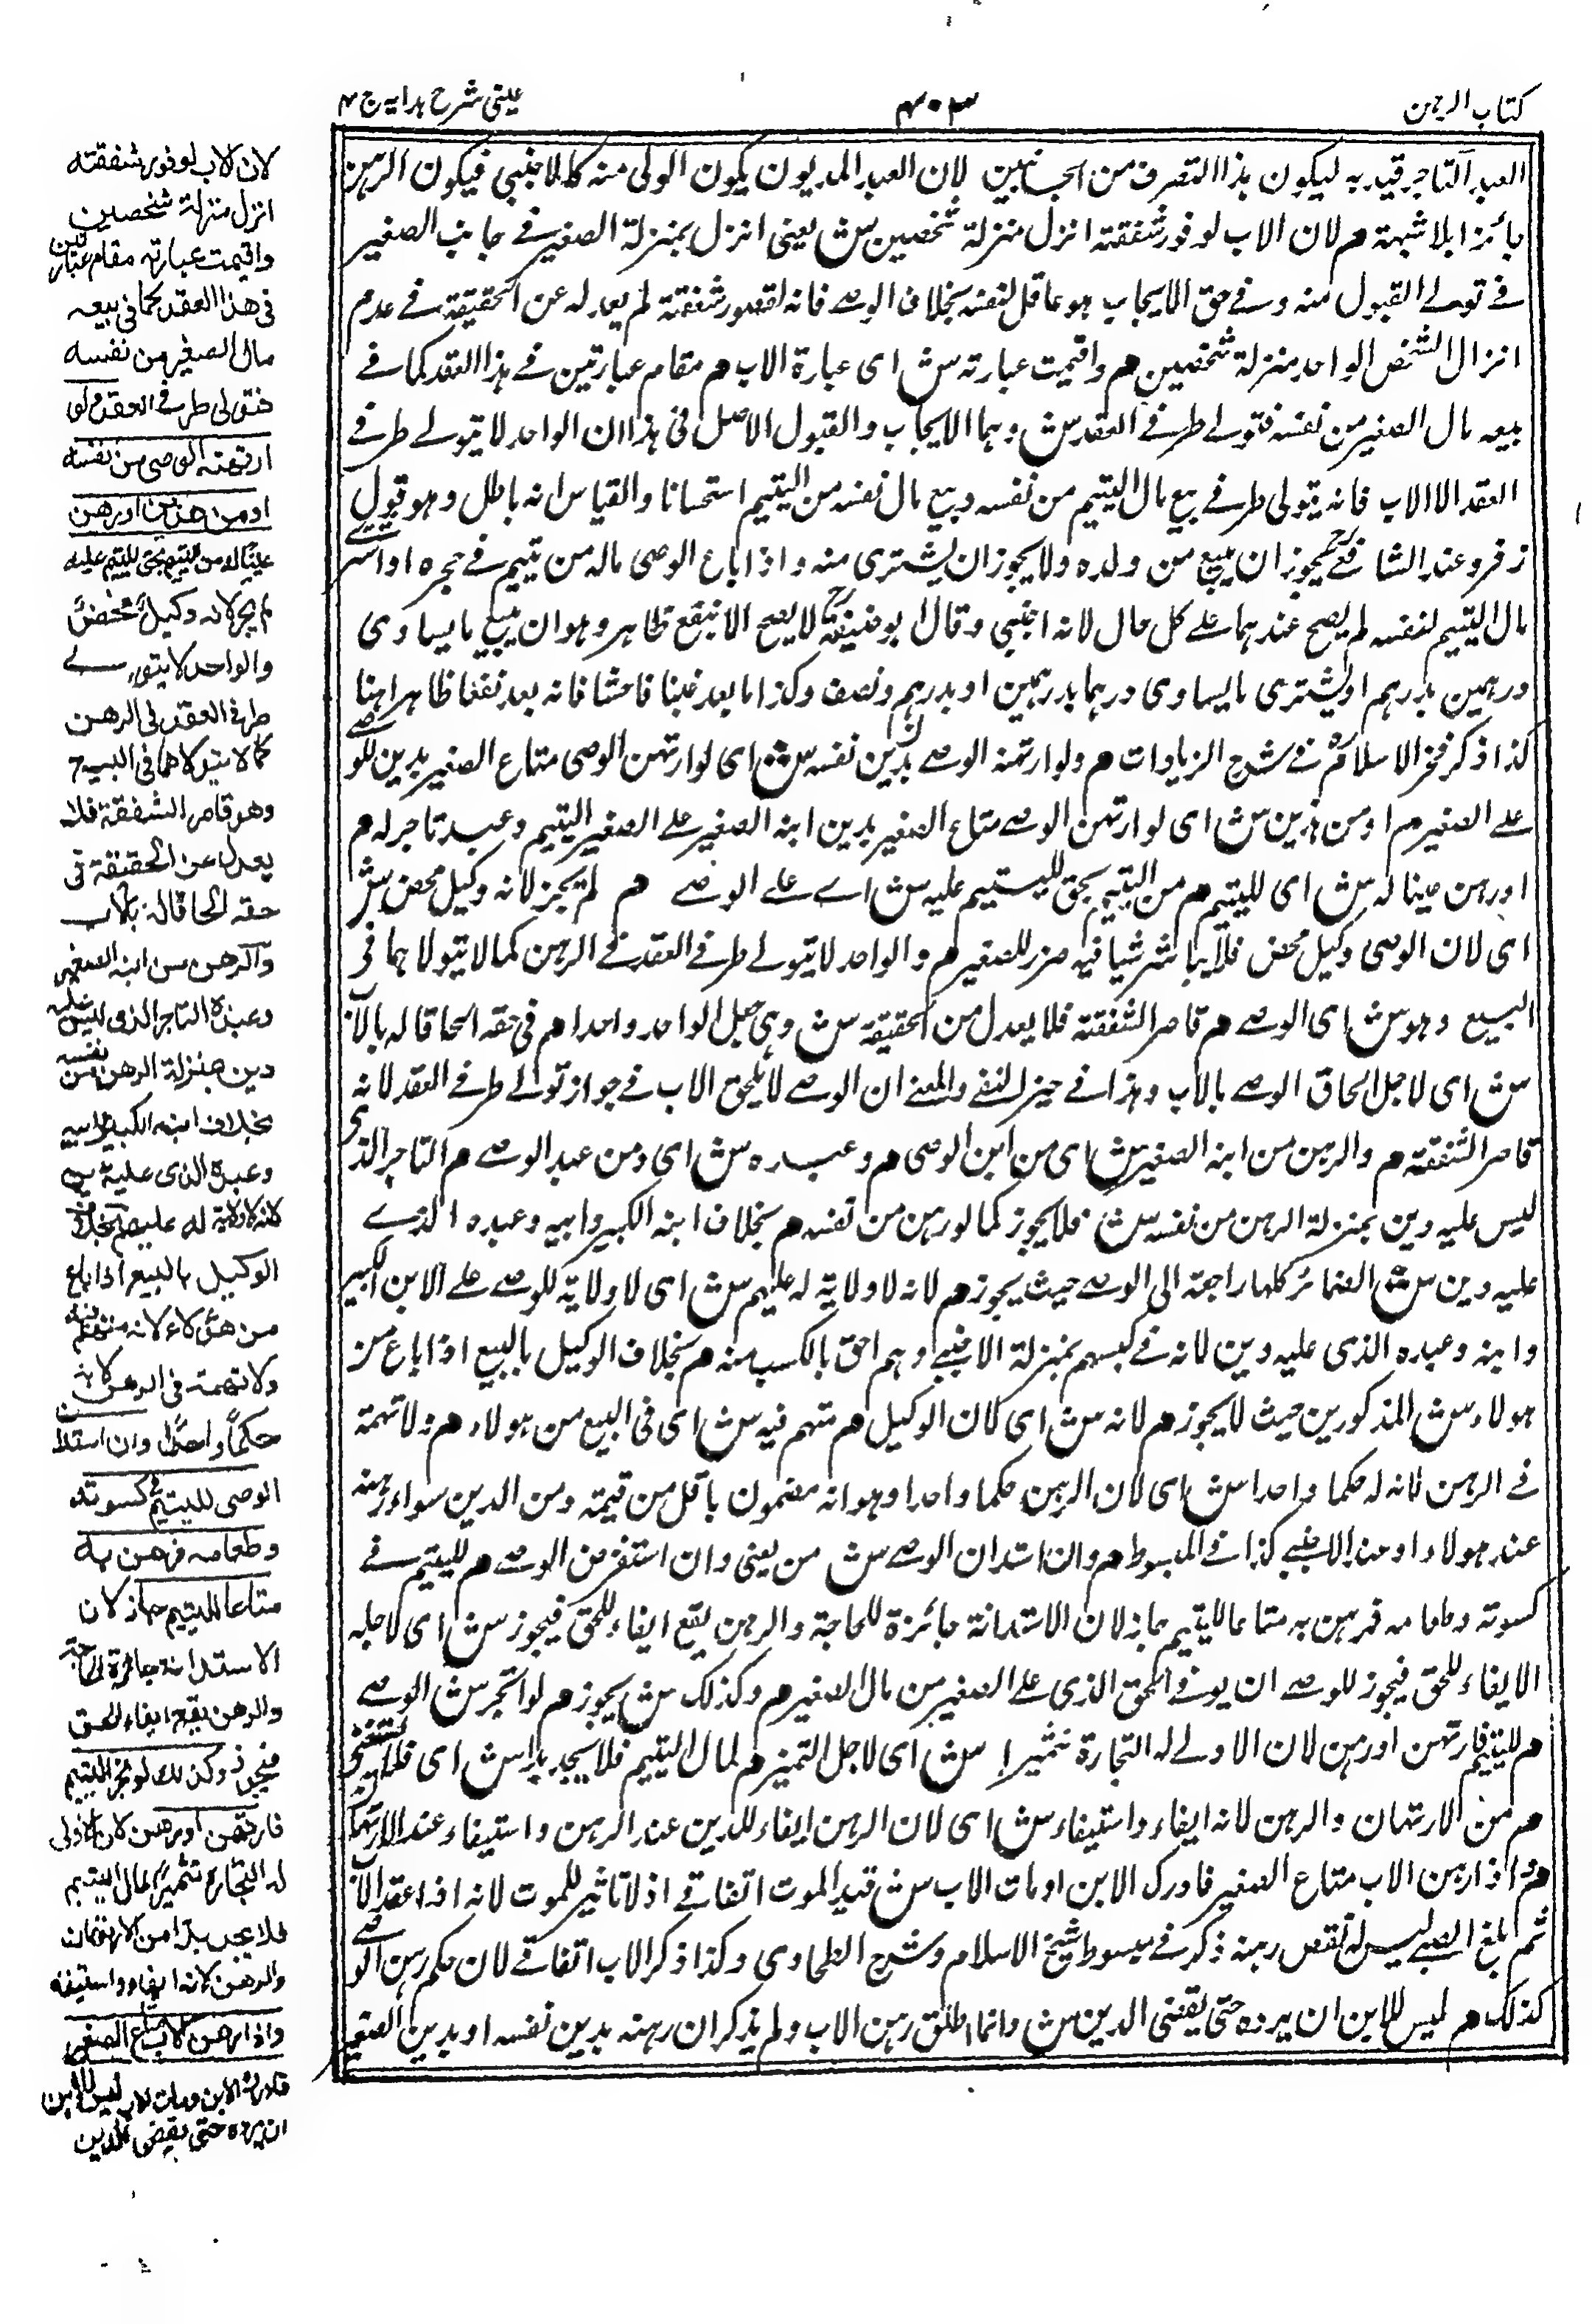 كتاب الرهن
٤٠٣
عينى شرح هدايه ج ٤
العبد التاجر قيد به ليكون هذا التصرف من الجانبين لان العبد المديون يكون الولى منه كالاجنبى فيكون الرهن
جائزا بلا شبهة م لان الاب لوفور شفقته انزل منزلة شخصين ش يعنى انزل بمنزلة الصغير فے جانب الصغير
فے تولے القبول منه و فے حق الايجاب هو عاقل لنفسه بخلاف الوصے فانه لقصور شفقته لم يعدله عن الحقيقة فے عدم
انزال الشخص الواحد منزلة شخصين م واقيمت عبارته ش اى عبارة الاب م مقام عبارتين فے هذا العقد كما فے
بيعه مال الصغير من نفسه فتولے طرفے العقد ش وهما الايجاب والقبول الاصل فى هذا ان الواحد لا يتولے طرفے
العقد الا الاب فانه يتولى طرفے بيع مال اليتيم من نفسه وبيع مال نفسه من اليتيم استحسانا والقياس انه باطل وهو قول
زفر وعند الشافعے يجوز ان يبيع من ولده ولا يجوز ان يشترى منه واذا باع الوصى ماله من يتيم فے حجره او اشترے
مال اليتيم لنفسه لم يصح عندهما علے كل حال لانه اجنبى وقال ابو حنيفة لا يصح الا بنفع ظاهر وهو ان يبيع ما يساوى
درهمين بدرهم او يشترى ما يساوى درهما بدرهمين او بدرهم ونصف وكذا ما يعد غبنا فاحشا فانه يعد نفعا ظاهرا هنا
كذا ذكر فخر الاسلام فے شرح الزيادات م ولو ارتهنه الوصے بدين نفسه ش اى لو ارتهن الوصى متاع الصغير بدين للوصے
علے الصغير م او من هذين ش اى لو ارتهن الوصے متاع الصغير بدين ابنه الصغير علے الصغير اليتيم وعبد تاجر له م
او رهن عينا له ش اى لليتيم م من اليتيم بحق لليتيم عليه ش اے علے الوصے م لم يجز لانه وكيل محض ش
اى لان الوصى وكيل محض فلا يباشر شيا فيه ضرر للصغير م والواحد لا يتولے طرفے العقد فے الرهن كما لا يتولاهما فى
البيع وهو ش اى الوصے م قاصر الشفقة فلا يعدل من الحقيقة ش وهى جعل الواحد واحدا م فى حقه الحاقا له بالاب
ش اى لاجل الحاق الوصے بالاب وهذا فے حيز النفے والمعنے ان الوصے لا يلحق الاب فے جواز تولے طرفے العقد لانه
قاصر الشفقة م والرهن من ابنه الصغير ش اى من ابن الوصى م وعبده ش اى ومن عبد الوصے م التاجر الذى
ليس عليه دين بمنزلة الرهن من نفسه ش فلا يجوز كما لو رهن من نفسه م بخلاف ابنه الكبير وابيه وعبده الذے
عليه دين ش الضمائر كلها راجعة الى الوصے حيث يجوز م لانه لا ولاية له عليهم ش اى لا ولاية للوصے علے الابن الكبير
وابيه وعبده الذى عليه دين لانه فے كسبهم بمنزلة الاجنبے وهم احق بالكسب منه م بخلاف الوكيل بالبيع اذا باع من
هولاء ش المذكورين حيث لا يجوز م لانه ش اى لان الوكيل م متهم فيه ش اى فى البيع من هولاء م ولا تهمة
فے الرهن لانه له حكما واحدا ش اى لان الرهن حكما واحدا وهو انه مضمون باقل من قيمته ومن الدين سواء رهنه
عند هولاء او عند الاجنبے كذا فے المبسوط م وان استدان الوصے ش من يعنى وان استقرض الوصے م لليتيم فے
كسوته وطعامه فرهن به متاعا لليتيم جاز لان الاستدانة جائزة للحاجة والرهن يقع ايفاء للحق فيجوز ش اى لاجله
الايفاء للحق فيجوز للوصے ان يوفے الحق الذى علے الصغير من مال الصغير م وكذلك ش يجوز م لو اتجر ش الوصے
م لليتيم فارتهن او رهن لان الاولے له التجارة تثميرا ش اى لاجل التثمير م لمال اليتيم فلا يجد بدا ش اى فلا
م من الارتهان والرهن لانه ايفاء واستيفاء ش اى لان الرهن ايفاء للدين عند الرهن واستيفاء عند الارتهان
م واذا رهن الاب متاع الصغير فادرك الابن او مات الاب ش قيد الموت اتفاقے اذ لا تاثير للموت لانه اذا عقد الاب
ثم بلغ الصبے ليس له نقض رهنه ذكره فے مبسوط شيخ الاسلام وشرح الطحاوى وكذا ذكر الاب اتفاقے لان حكم رهن الوصے
كذلك م ليس للابن ان يرده حتى يقضى الدين ش وانما اطلق رهن الاب ولم يذكر ان رهنه بدين نفسه او بدين الصغير
لان الاب لوفور شفقته
انزل منزلة شخصين
واقيمت عبارته مقام عبارتين
فى هذا العقد كما فى بيعه
مال الصغير من نفسه
فتولى طرفے العقد ولو
ارتهنه الوصى من نفسه
او من هذين او رهن
عينا له من اليتيم بحق لليتيم عليه
لم يجز لانه وكيل محض
والواحد لا يتولے
طرفى العقد فى الرهن
كما لا يتولاهما فى البيع
وهو قاصر الشفقة فلا
يعدل عن الحقيقة فى
حقه الحاقا له بالاب
والرهن من ابنه الصغير
وعبده التاجر الذى ليس عليه
دين بمنزلة الرهن من نفسه
بخلاف ابنه الكبير وابيه
وعبده الذى عليه دين
لانه لا ولاية له عليهم بخلاف
الوكيل بالبيع اذا باع
من هؤلاء لانه متهم فيه
ولا تهمة فى الرهن لانه
حكما واحدا وان استدان
الوصى لليتيم فى كسوته
وطعامه فرهن به
متاعا لليتيم جاز لان
الاستدانة جائزة للحاجة
والرهن يقع ايفاء للحق
فيجوز وكذلك لو اتجر لليتيم
فارتهن او رهن لان الاولى
له التجارة تثميرا لمال اليتيم
فلا يجد بدا من الارتهان
والرهن لانه ايفاء واستيفاء
واذا رهن الاب متاع الصغير
فادرك الابن ومات الاب ليس للابن
ان يرده حتى يقضى الدين